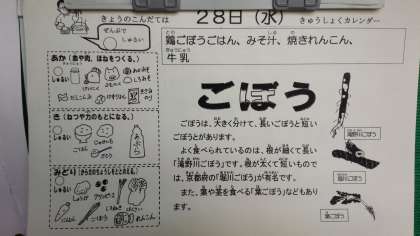 きょうのこんだては
28日（水）
きゅうしょくカレンダー
ぜんぶで
しゅるい
鶏ごぼうごはん、みそ汁、焼きれんこん、
牛乳
あか（血や肉、ほねをつくる。）
しゅるい
き（ねつや力のもとになる。）
しゅるい
ごはん
あぶら
みどり（からだのちょうしをととのえる。）
しゅるい
ごぼう
れんこん
ごぼう
ごぼうは、大きく分けて、長いごぼうと短い
ごぼうとがあります。
よく食べられているのは、根が細くて長い
「滝野川ごぼう」です。根が太くて短いもので
は、京都府の「堀川ごぼう」が有名です。
また、葉や茎を食べる「葉ごぼう」などもあり
ます。
滝野川ごぼう
堀川ごぼう
葉ごぼう